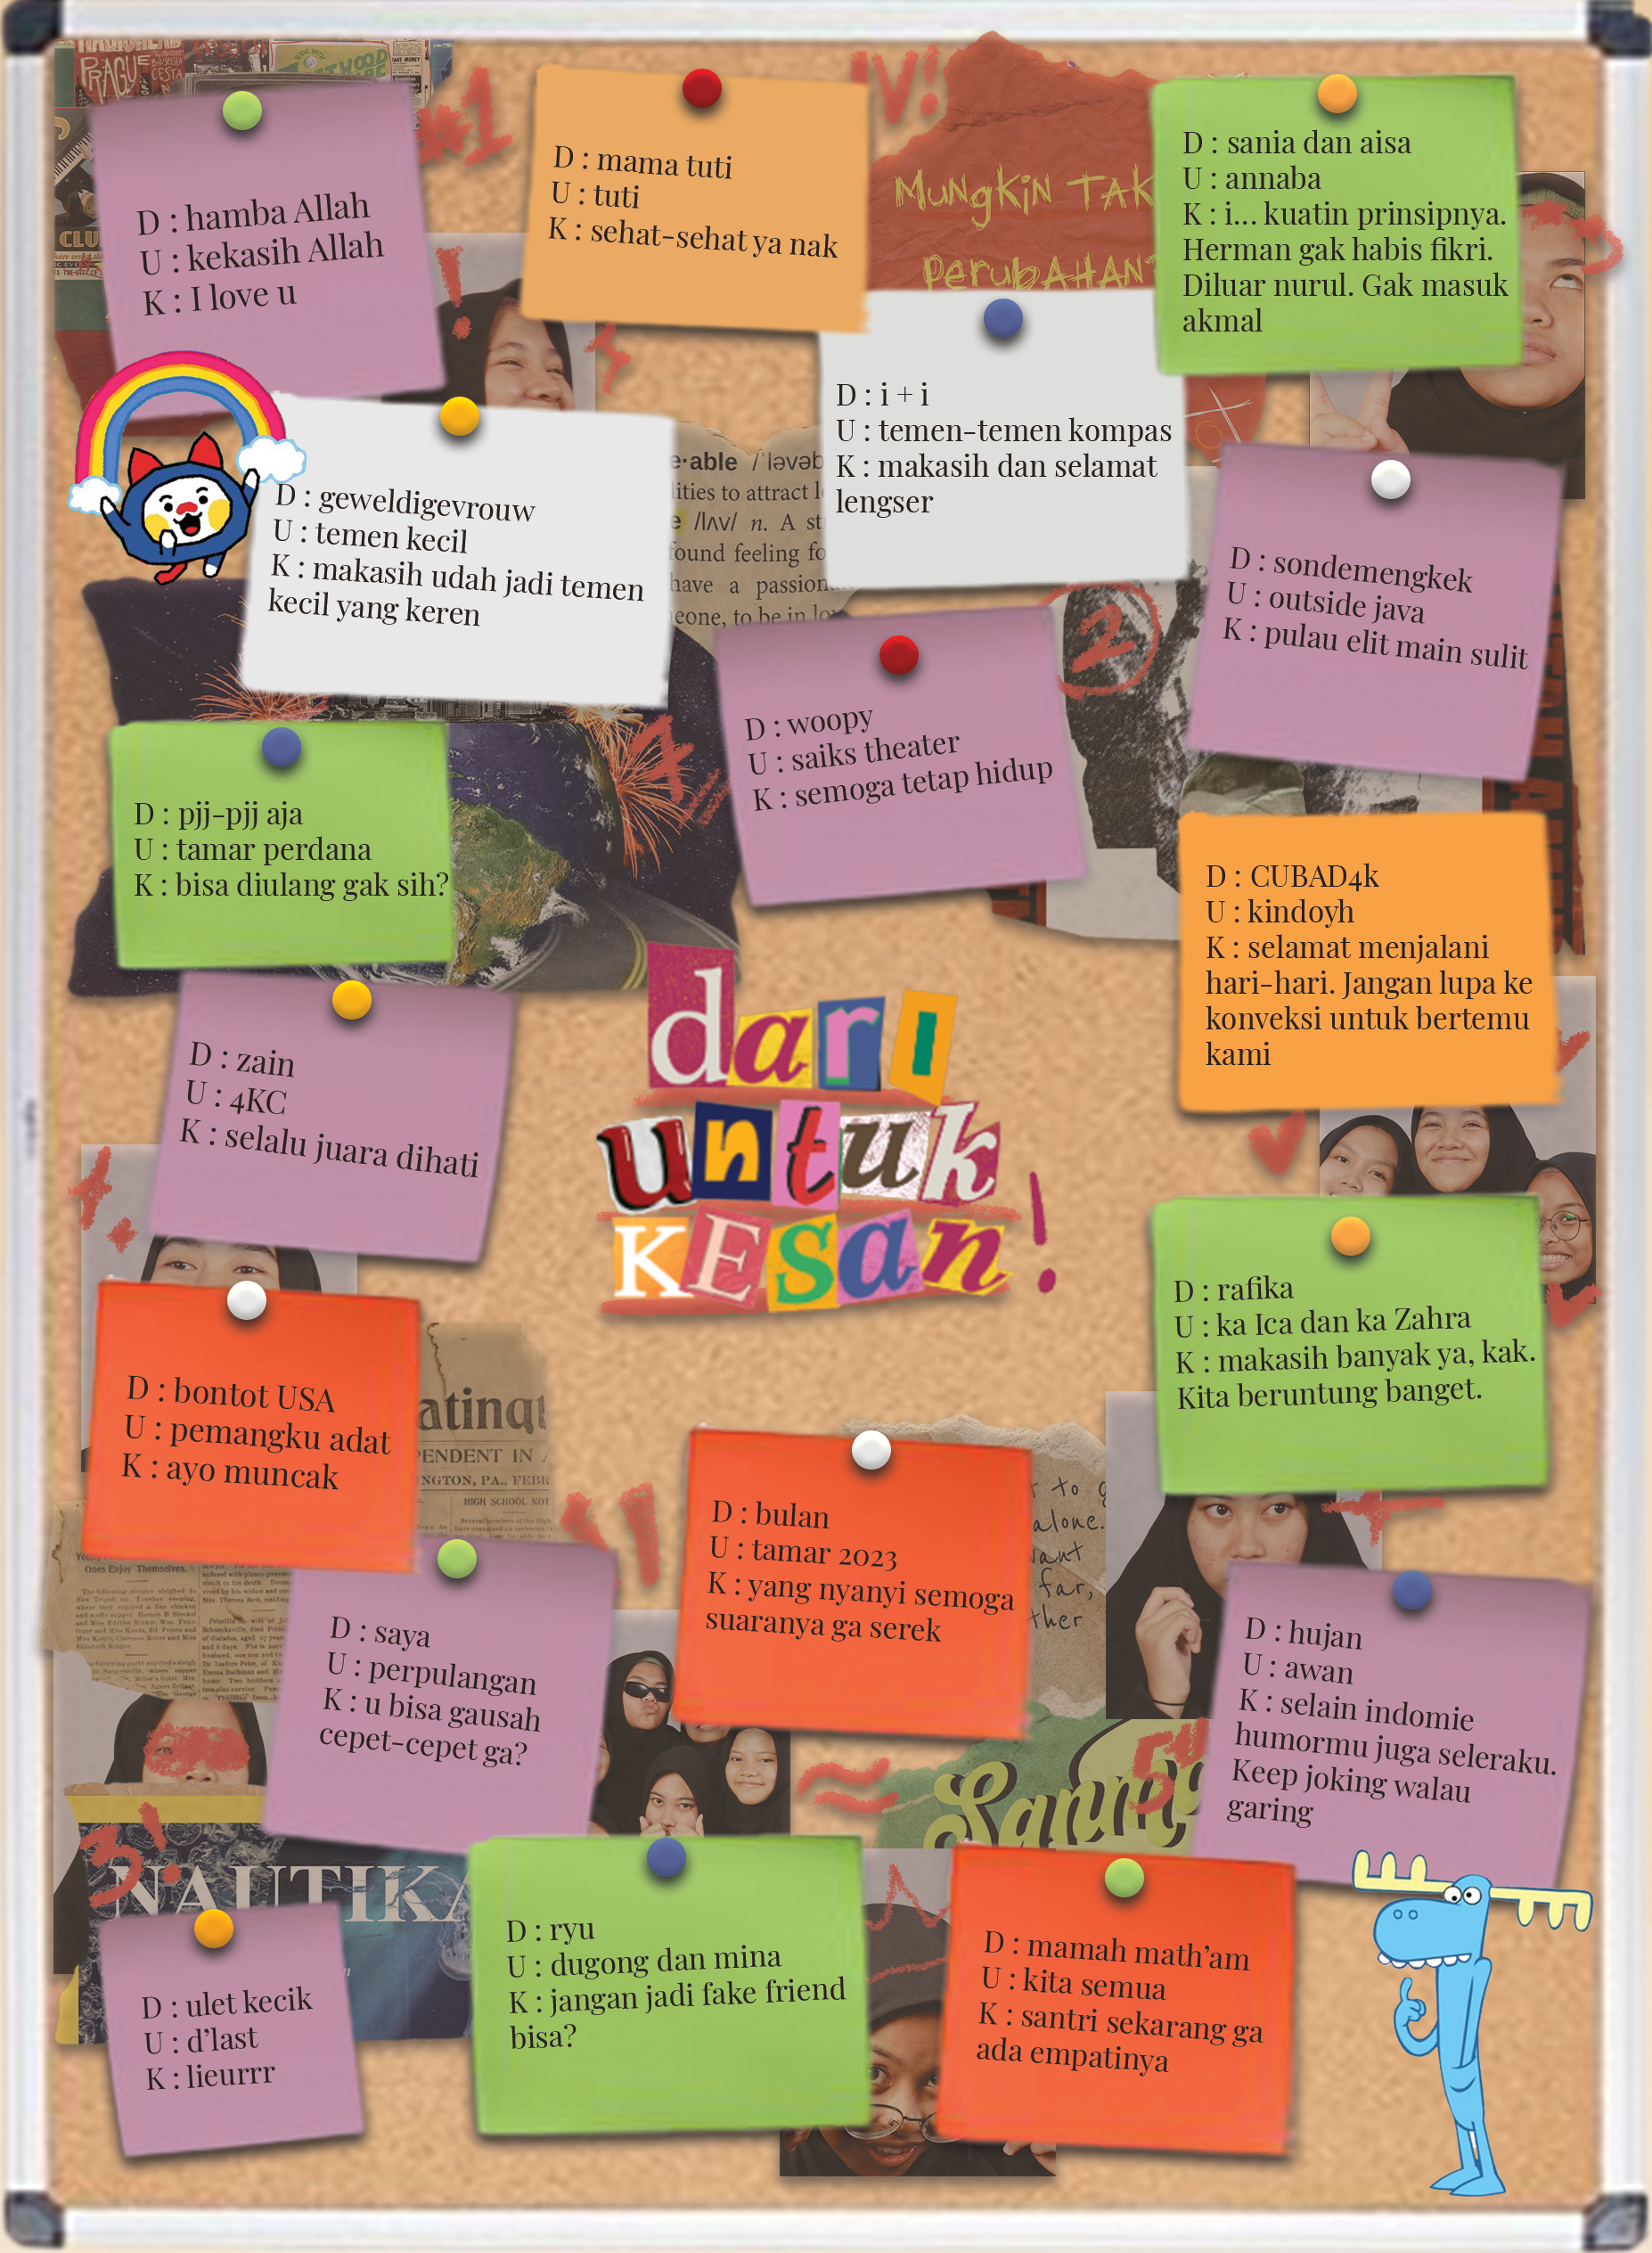 RADIOHEAD
PRAGUE
CESTA
#1
V!
D : hamba Allah
U : kekasih Allah
K : I love u
D : mama tuti
U : tuti
K : sehat-sehat ya nak
MUNGKIN TAK
PERUBAHAN
D : sania dan aisa
U : annaba
K : i... kuatin prinsipnya.
Herman gak habis fikri.
Diluar nurul. Gak masuk
akmal
D : i + i
U : temen-temen kompas
K : makasih dan selamat
lengser
D : geweldigevrouw
U : temen kecil
K : makasih udah jadi temen
kecil yang keren
e·able /ˈləvəb
lities to attract l
e /lʌv/ n. A st
found feeling fo
have a passion
eone, to be in lov
D : sondemengkek
U : outside java
K : pulau elit main sulit
2
D : woopy
U : saiks theater
K : semoga tetap hidup
D : pjj-pjj aja
U : tamar perdana
K : bisa diulang gak sih?
D : CUBAD4k
U : kindoyh
K : selamat menjalani
hari-hari. Jangan lupa ke
konveksi untuk bertemu
kami
D : zain
U : 4KC
K : selalu juara dihati
darI
untuk
KESan!
D : rafika
U : ka Ica dan ka Zahra
K : makasih banyak ya, kak.
Kita beruntung banget.
D : bontot USA
U : pemangku adat
K : ayo muncak
atinqu
PENDENT IN
NGTON, PA., FEBR
HIGH SCHOOL NOT
Ones Enjoy Themselves.
D : bulan
U : tamar 2023
K : yang nyanyi semoga
suaranya ga serek
to g
alone.
want
far,
ther
D : saya
U : perpulangan
K : u bisa gausah
cepet-cepet ga?
D : hujan
U : awan
K : selain indomie
humormu juga seleraku.
Keep joking walau
garing
3!
NAUTIKA
D : ulet kecik
U : d'last
K : lieurrr
D : ryu
U : dugong dan mina
K : jangan jadi fake friend
bisa?
D : mamah math'am
U : kita semua
K : santri sekarang ga
ada empatinya